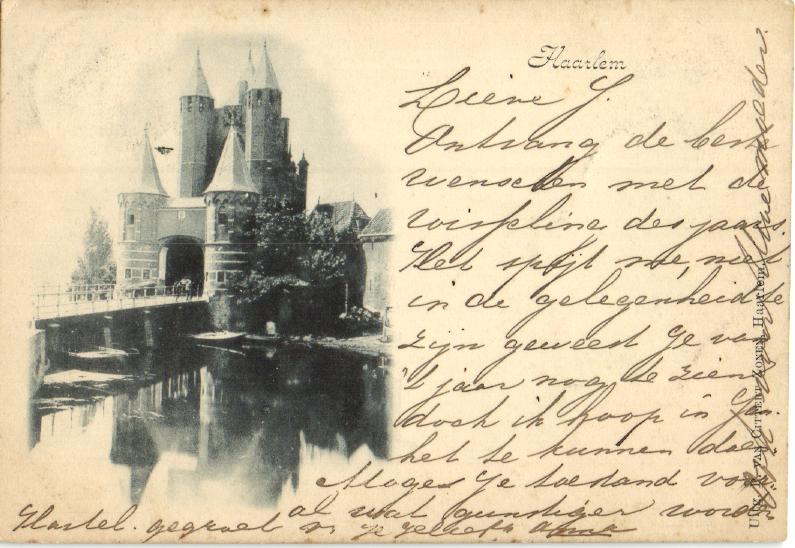 Haarlem
Lieve J.
Ontvang de beste
wenschen met de
wisseling des jaars.
Het spijt me, niet
in de gelegenheid te
zijn geweest je van
't jaar nog te zien
doch ik hoop in Jan.
het te kunnen doen
Moge je toestand voor
al wat gunstiger worden
Hartel. gegroet v. je
UITG. R. VAN CITTERT ZONEN, Haarlem.